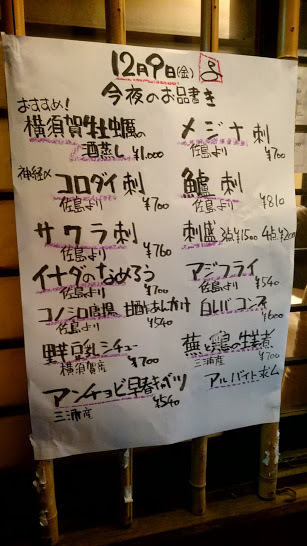 12月9日(金)
今夜のお品書き
おすすめ!
横須賀牡蠣の
酒蒸し ¥1,000
神経〆 コロダイ刺
佐島より ¥700
サワラ刺
佐島より ¥760
イナダのなめろう
佐島より ¥700
コノシロ唐揚 甘酢あんかけ
佐島より ¥540
鮮豆乳シチュー
横須賀産 ¥700
アンチョビ早春キャベツ
三浦産 ¥540
メジナ刺
佐島より ¥700
鱸刺
佐島より ¥810
刺盛 3点¥1500 4点¥2000
アジフライ
佐島より ¥540
白レバコンフィ
¥600
蕪と鶏の生姜煮
三浦産 ¥700
アルバイト求ム